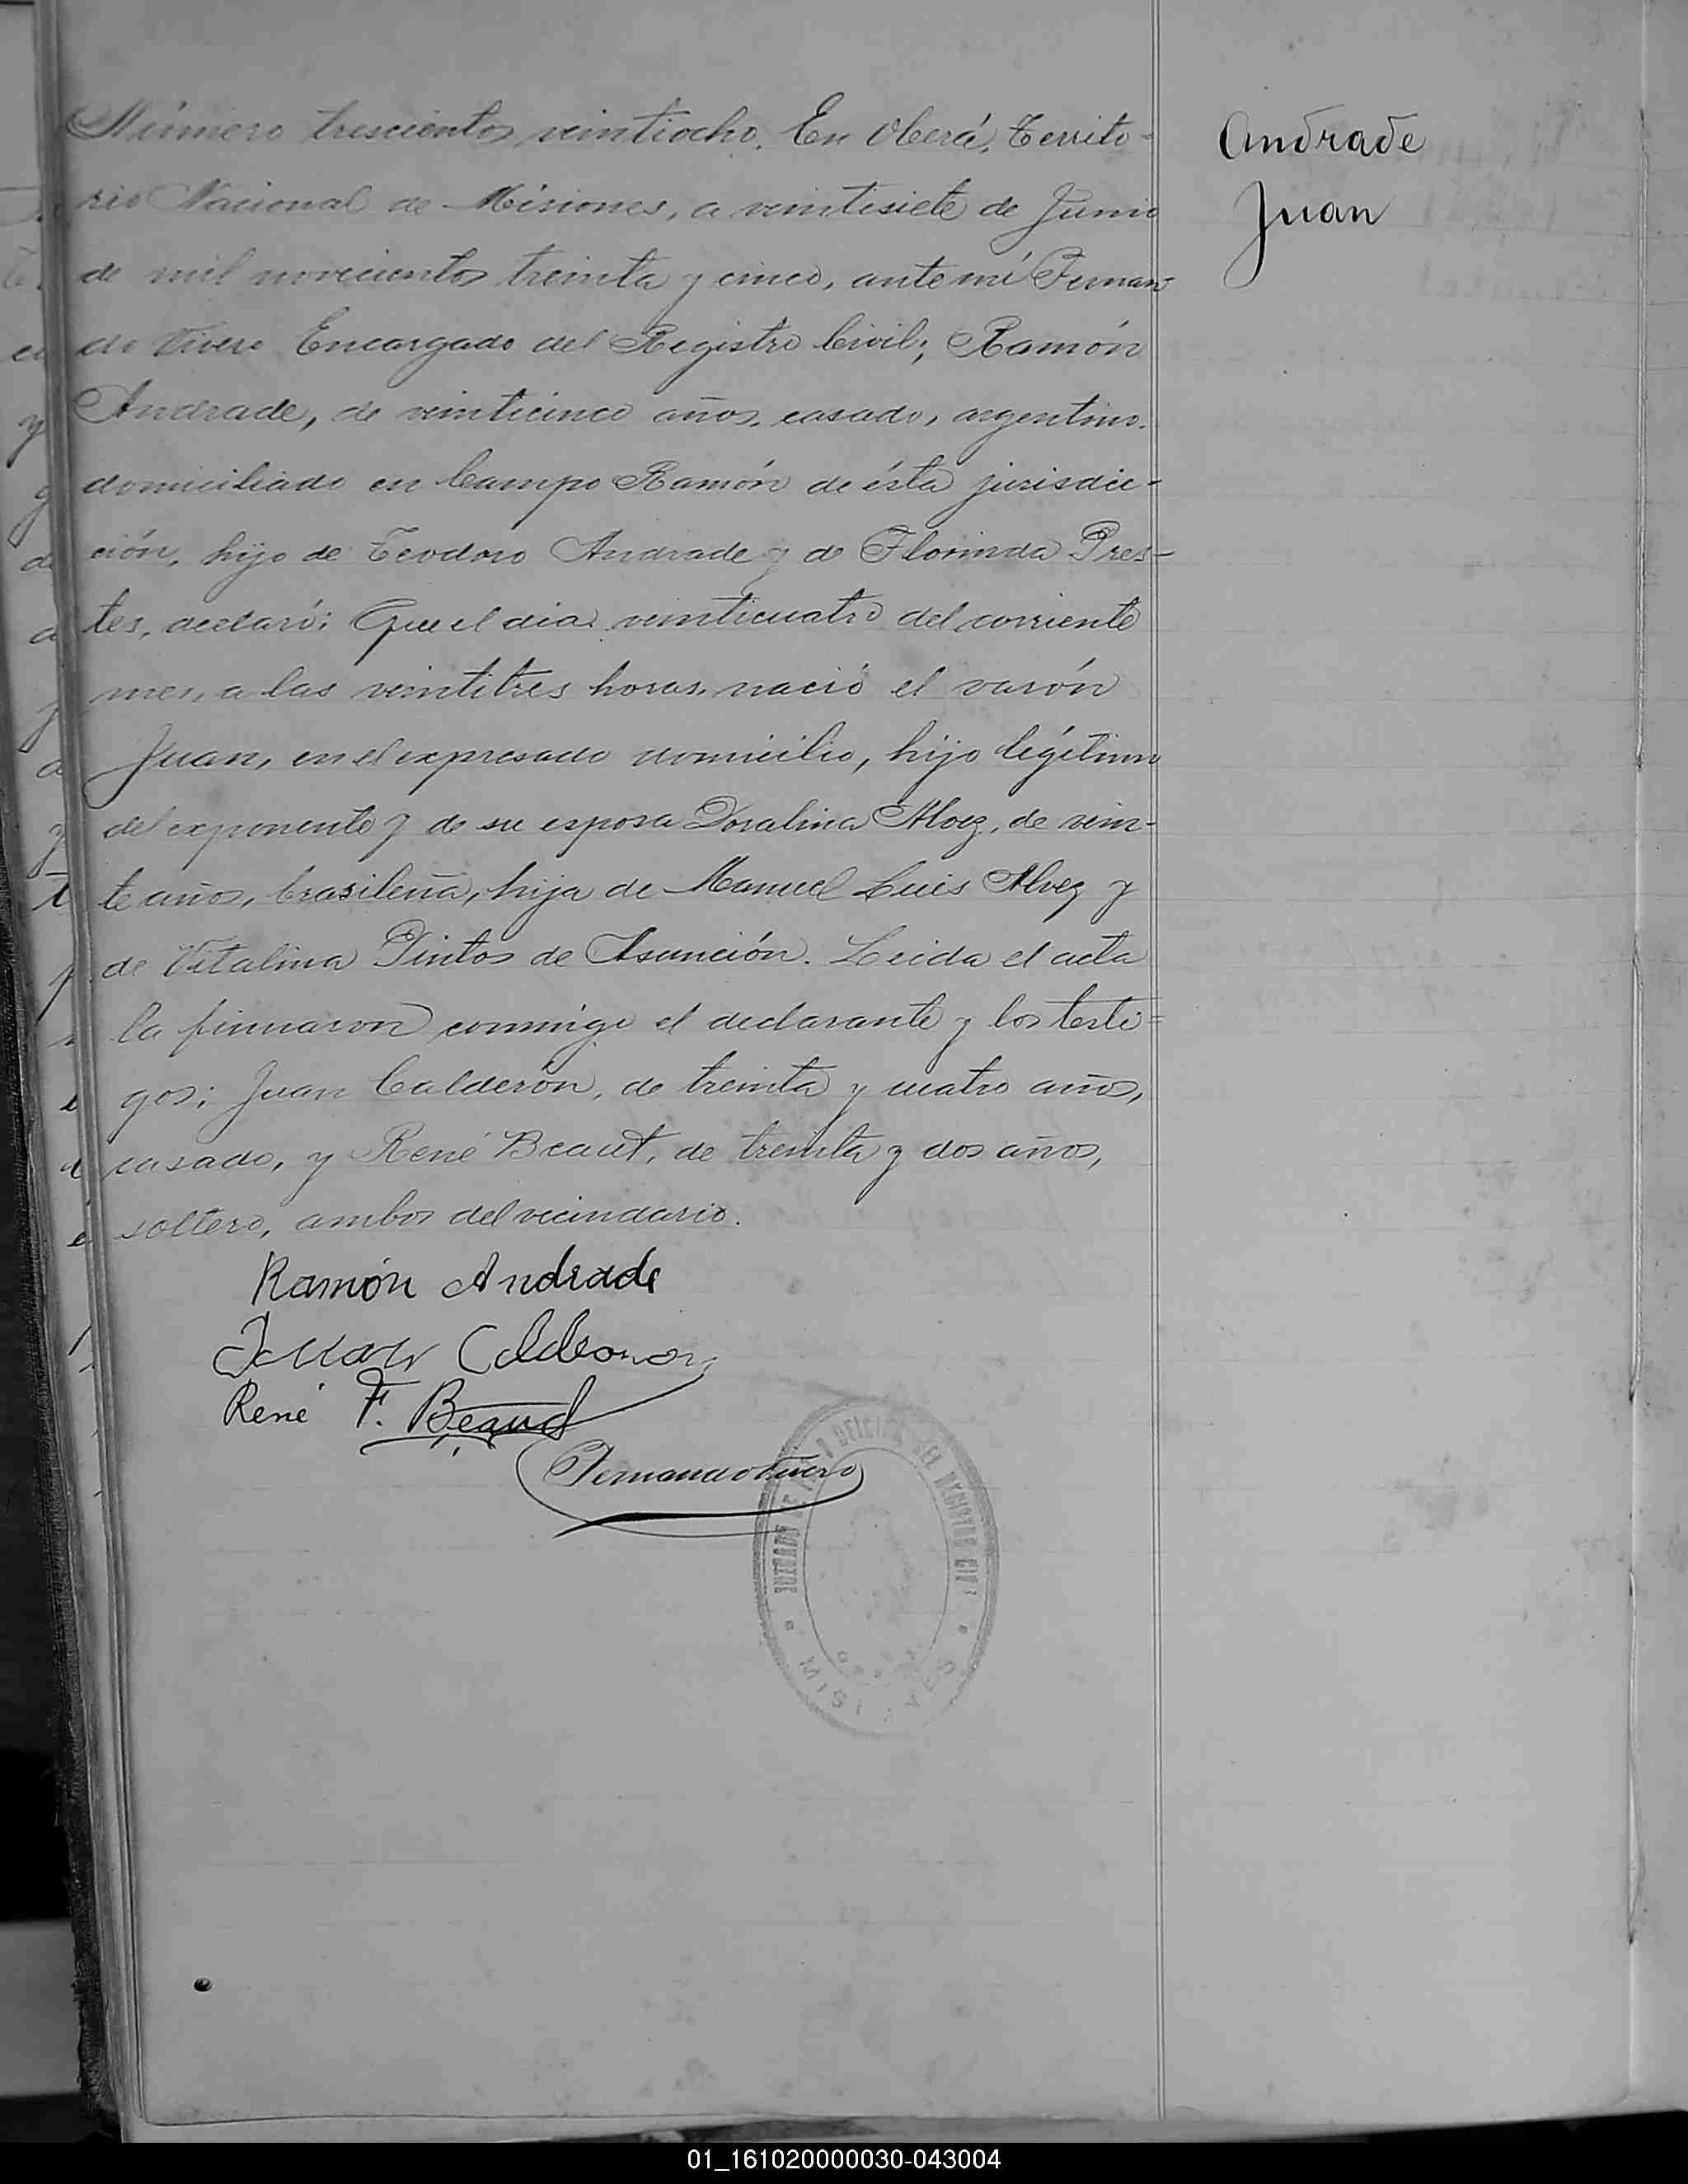 Número trescientos veintiocho. En Oberá, Territo-
rio Nacional de Misiones, a veintisiete de Junio
de mil novecientos treinta y cinco, ante mí Fernan-
do Vivero Encargado del Registro Civil; Ramón
Andrade, de veinticinco años, casado, argentino.
domiciliado en Campo Ramón de ésta jurisdic-
ción, hijo de Teodoro Andrade y de Florinda Pres-
tes, declaró: Que el día veinticuatro del corriente
mes, a las veintitres horas, nació el varón
Juan, en el expresado domicilio, hijo legítimo
del exponente y de su esposa Doralina Alvez, de vein-
te años, brasileña, hija de Manuel Luis Alvez y
de Vitalina Pintos de Asunción. Leida el acta
la firmaron conmigo el declarante y los testi=
gos; Juan Calderón, de treinta y cuatro años,
casado, y René Beaut, de treinta y dos años,
soltero, ambos del vecindario.
Andrade
Juan
Ramón Andrade
Juan Calderon
René F. Beaud
Fernando Vivero
OFICINA DEL REGISTRO CIVIL
MISIONES
01_161020000030-043004